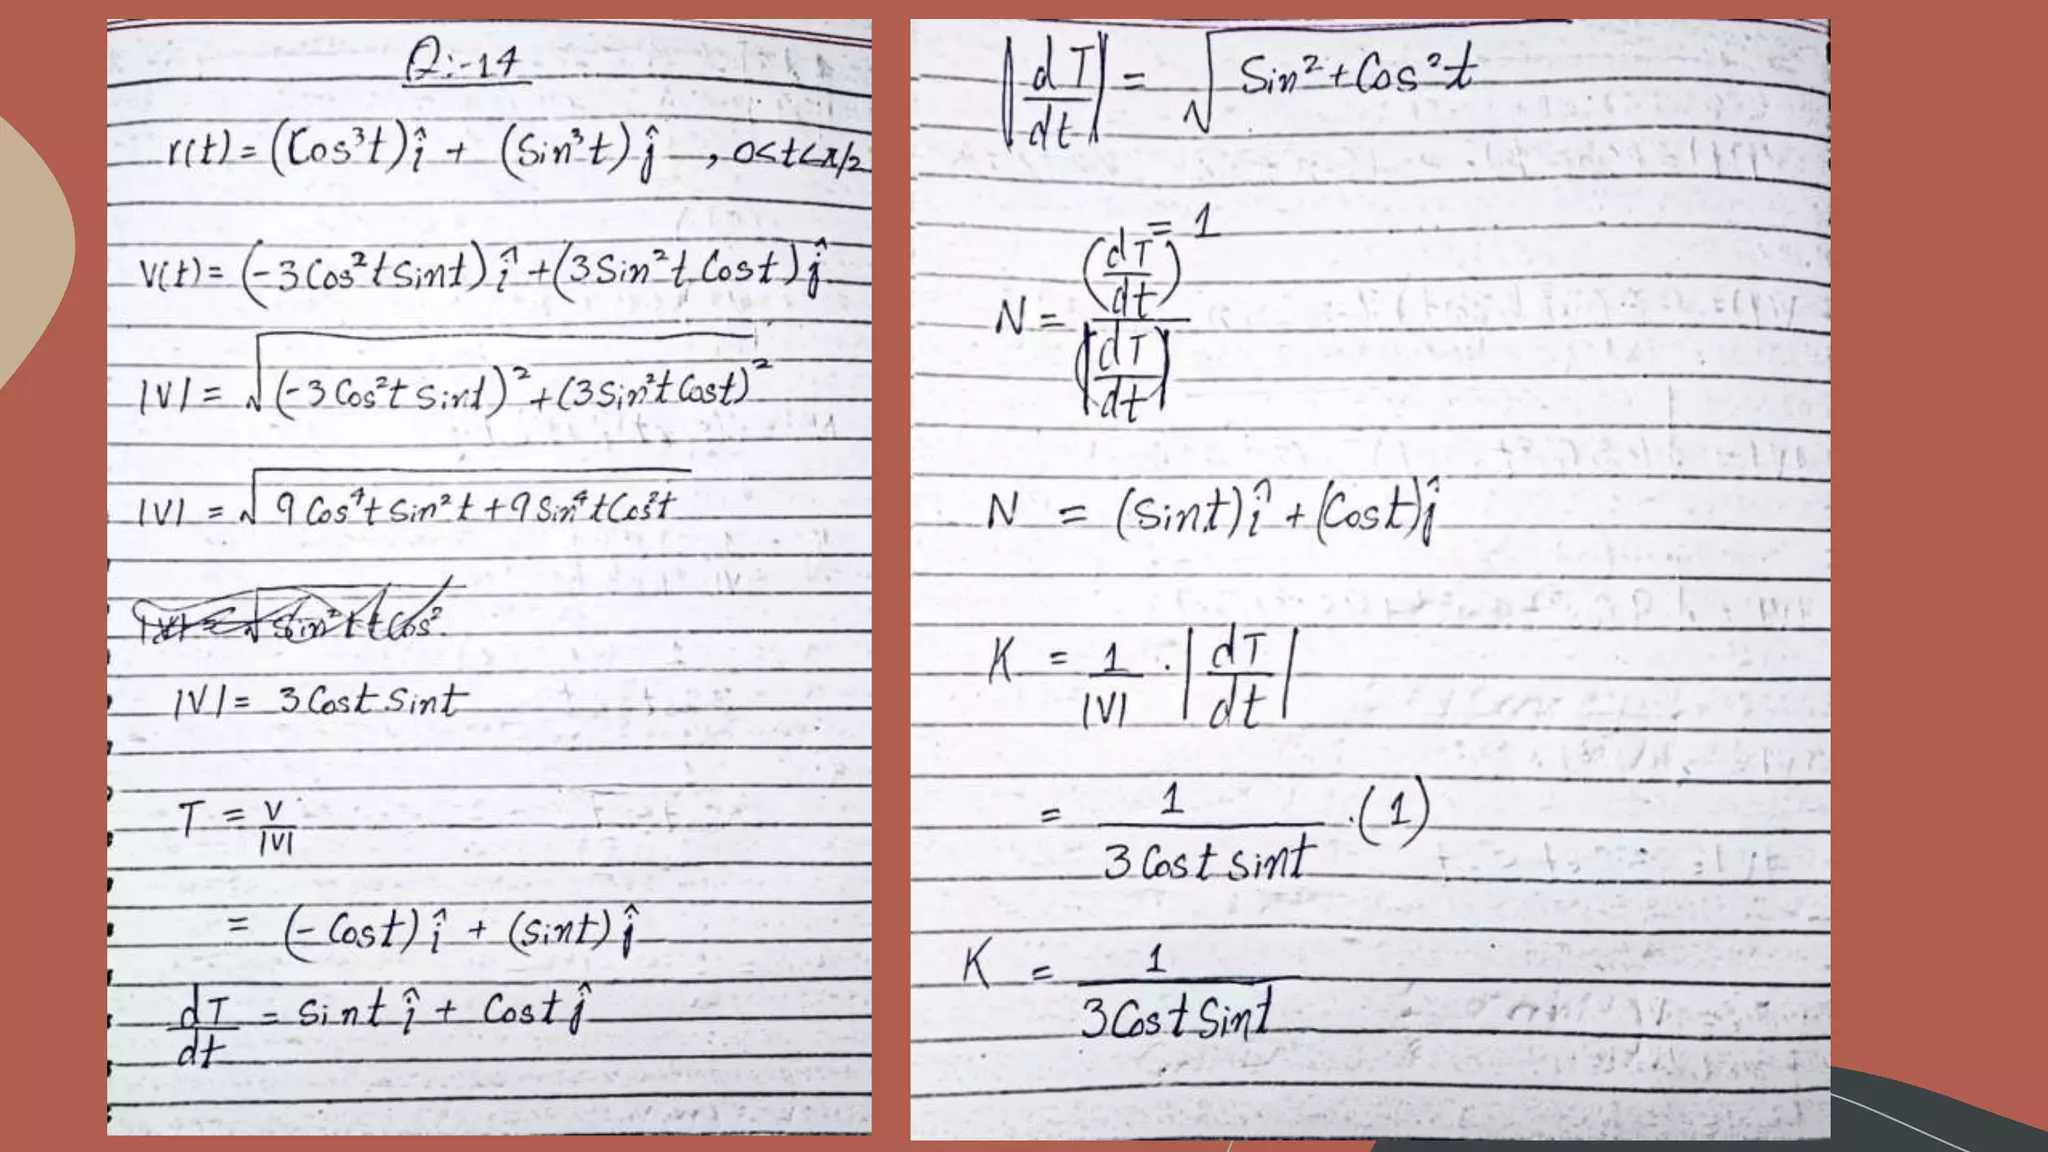 Q:-14
r(t) = (Cos³t)î + (Sin³t)ĵ , 0<t<π/2
V(t) = (-3Cos²tSint)î + (3Sin²t Cost)ĵ
|V| = √(-3Cos²t Sint)² + (3Sin²t Cost)²
|V| = √9Cos⁴tSin²t + 9Sin⁴tCos²t
|V| = 3Cost.Sint
T = V/|V|
= (-Cost)î + (Sint)ĵ
dT/dt = Sint î + Cost ĵ
|dT/dt| = √Sin²+Cos²t
= 1
N = (dT/dt)/(|dT/dt|)
N = (Sint)î + (Cost)ĵ
K = 1/|V| . |dT/dt|
= 1/3Cost sint .(1)
K = 1/3Cost Sint